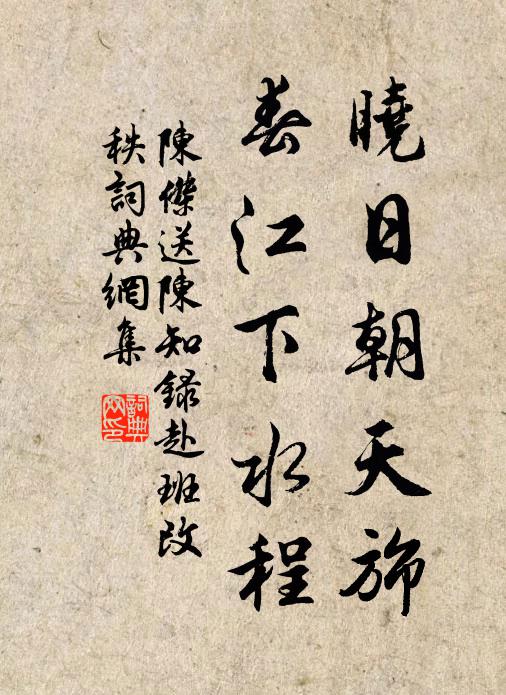 曉日朝天旆
春江下水程
陳傑送陳知錄赴班改
秩詞典網集
詞典网印